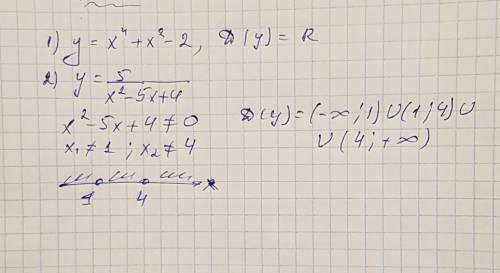 1) y = x⁴ + x² - 2, D(y) = R
2) y = 5 / (x² - 5x + 4)
x² - 5x + 4 ≠ 0
x₁ ≠ 1 ; x₂ ≠ 4
D(y) = (-∞; 1) ∪ (1; 4) ∪
∪ (4; +∞)
1 4 x